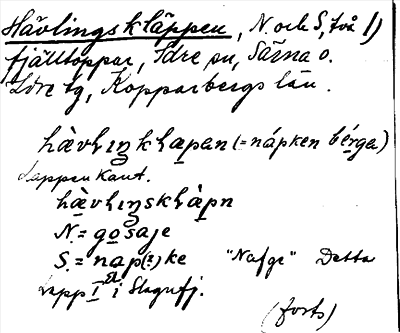 Hävlingskläppen, N. och S, två 1)
fjälltoppar, Idre sn, Särna o.
Idre tg, Kopparbergs län.
hàvlıŋklapan (= nápken bérga)
Lappen Kant.
hàvlıŋsklàpn
N. = gosaje
S. = nap(:)ke "Nafge" Detta
Lapp I i Slagufj.
(forts)